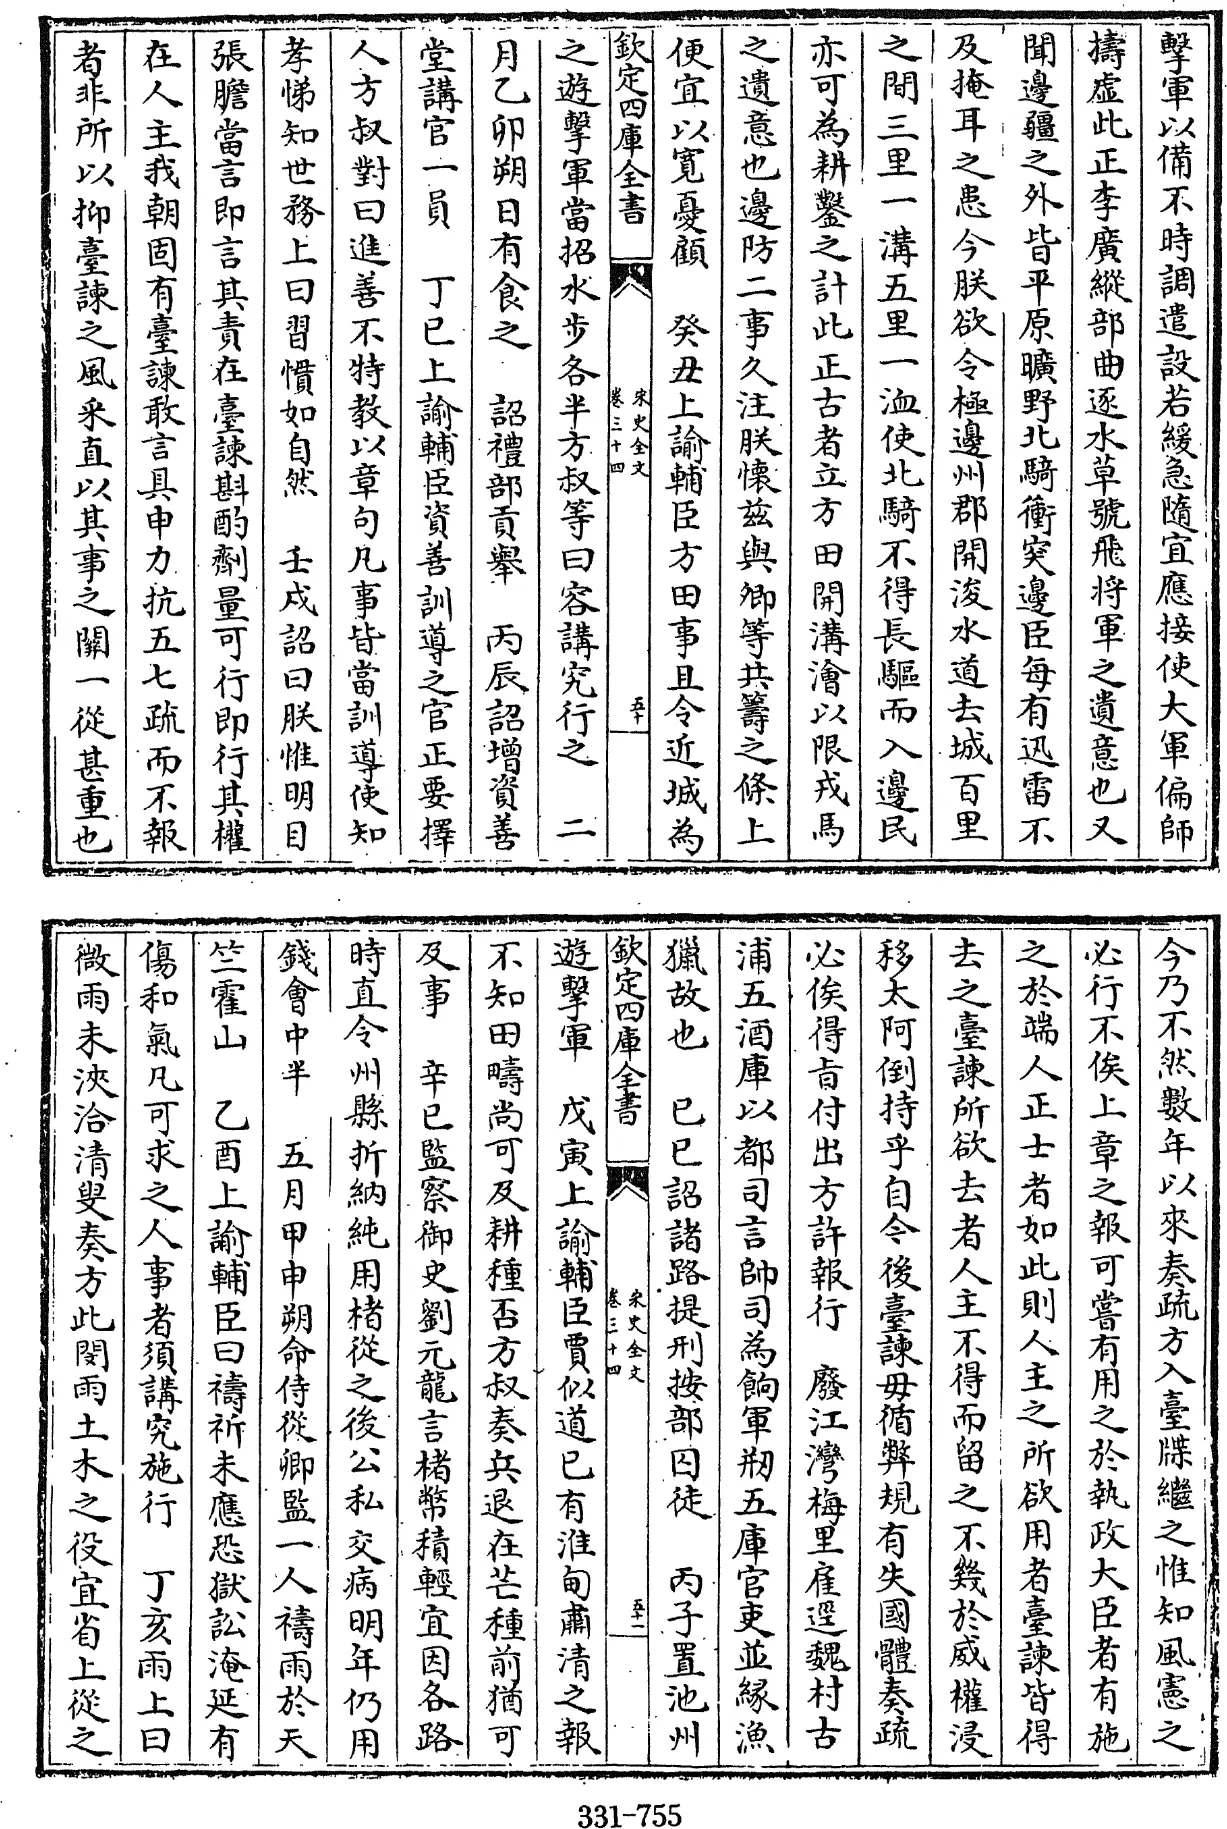 擊軍以備不時調遣設若緩急隨宜應接使大軍偏師
擣虛此正李廣縱部曲逐水草號飛將軍之遺意也又
聞邊疆之外皆平原曠野北騎衝突邊臣每有迅雷不
及掩耳之患今朕欲令極邊州郡開浚水道去城百里
之間三里一溝五里一洫使北騎不得長驅而入邊民
亦可為耕鑿之計此正古者立方田開溝澮以限戎馬
之遺意也邊防二事久注朕懷兹與卿等共籌之條上
便宜以寛憂顧　癸丑上諭輔臣方田事且令近城為
欽定四庫全書
宋史全文
卷三十四
五十
之遊擊軍當招水步各半方叔等曰容講究行之　二
月乙卯朔日有食之　詔禮部貢舉　丙辰詔增資善
堂講官一員　丁巳上諭輔臣資善訓導之官正要擇
人方叔對曰進善不特教以章句凡事皆當訓導使知
孝悌知世務上曰習慣如自然　壬戌詔曰朕惟明目
張膽當言即言其責在臺諫斟酌劑量可行即行其權
在人主我朝固有臺諫敢言具申力抗五七疏而不報
者非所以抑臺諫之風采直以其事之關一從甚重也
今乃不然數年以來奏疏方入臺牒繼之惟知風憲之
必行不俟上章之報可嘗有用之於執政大臣者有施
之於端人正士者如此則人主之所欲用者臺諫皆得
去之臺諫所欲去者人主不得而留之不幾於威權浸
移太阿倒持乎自今後臺諫毋循弊規有失國體奏疏
必俟得旨付出方許報行　廢江灣梅里雇逕魏村古
浦五酒庫以都司言帥司為餉軍剏五庫官吏並緣漁
獵故也　己巳詔諸路提刑按部囚徒　丙子置池州
欽定四庫全書
宋史全文
卷三十四
五十一
遊擊軍　戊寅上諭輔臣賈似道已有淮甸肅清之報
不知田疇尚可及耕種否方叔奏兵退在芒種前猶可
及事　辛巳監察御史劉元龍言楮幣積輕宜因各路
時直令州縣折納純用楮從之後公私交病明年仍用
錢會中半　五月甲申朔命侍從卿監一人禱雨於天
竺霍山　乙酉上諭輔臣曰禱祈未應恐獄訟淹延有
傷和氣凡可求之人事者須講究施行　丁亥雨上曰
微雨未浹洽清叟奏方此閔雨土木之役宜省上從之
331-755